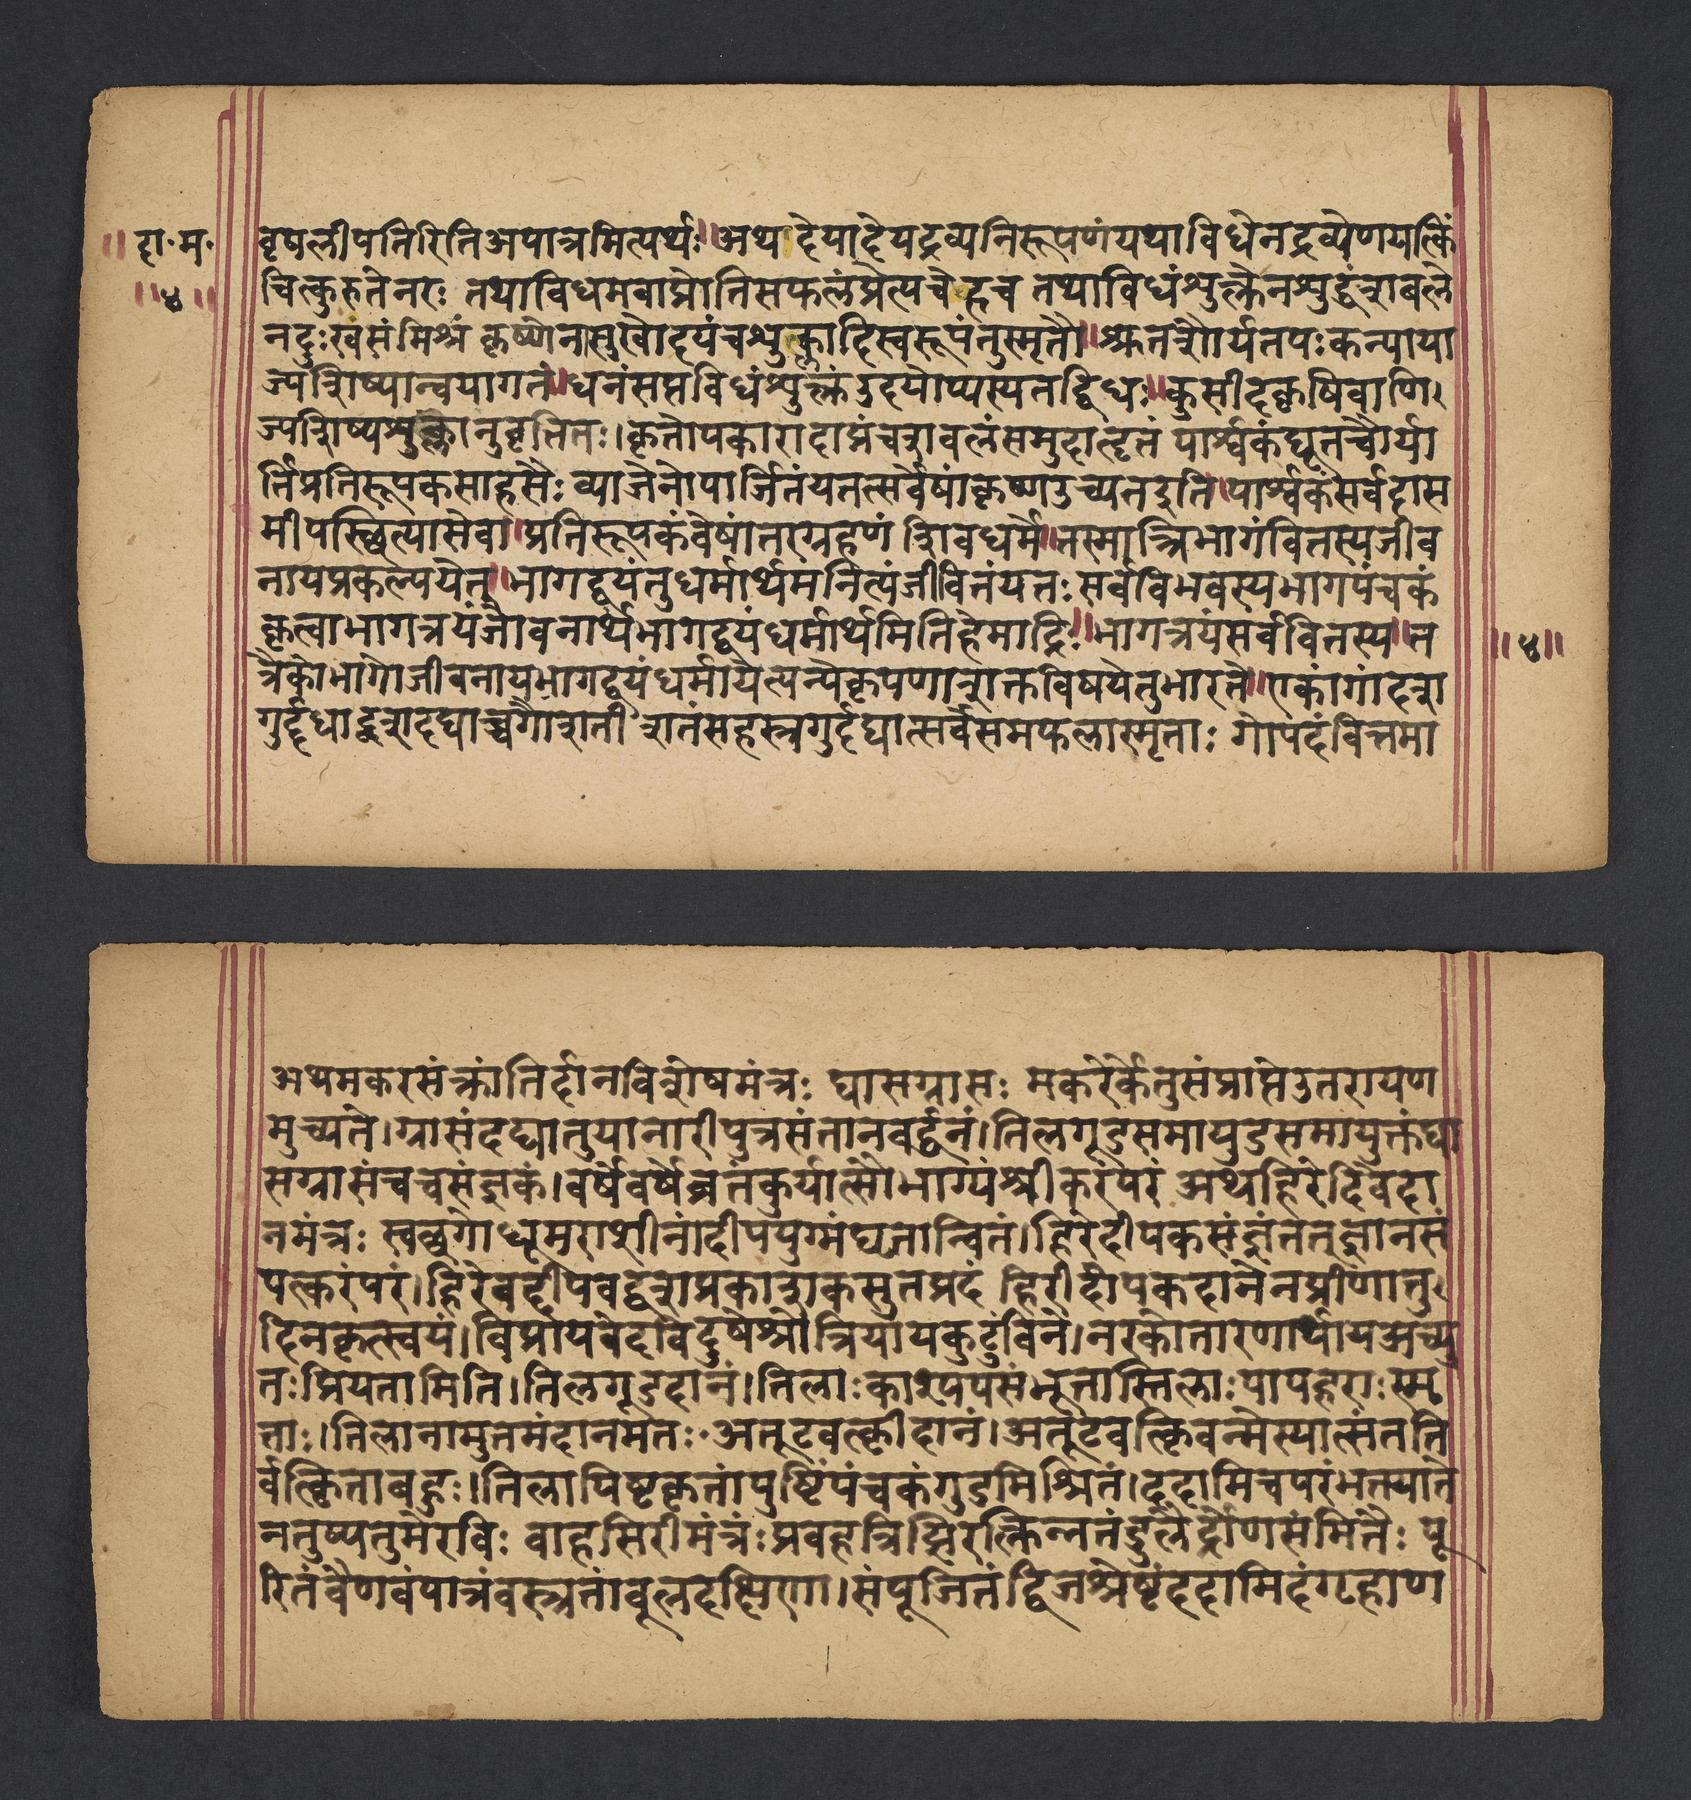 ॥दा॰म॰
॥४॥
वृषलीपतिरितिअपात्रमित्यर्थः॥अथदेयादेयद्रव्यनिरूपणंयथाविधेनद्रव्येणयत्किं
चित्कुरुतेनरः तथाविधमवाप्नोतिसफलंप्रेत्यचेहच तथाविधंशुक्लेनशुद्धंशबले
नदुःखसंमिश्रं कृष्णेनासुखोदयंचशुक्लादिस्वरूपंतुस्मृतौ॥श्रुतशौर्यतपःकन्याया
ज्यशिष्यान्वयागतं॥धनंसप्तविधंशुक्लंउदयोप्यस्यतद्विधः॥कुसीदकृषिवाणि
ज्यशिष्यशुल्कानुवृत्तितः।कृतोपकारादाप्तंचशबलंसमुदाहृतं पार्श्वकद्यूतचौर्या
र्त्तिप्रतिरूपकसाहसैः व्याजेनोपार्जितंयतत्सर्वेषांकृष्णउच्यतइति॥पार्श्वकंसर्वदास
मीपस्थित्यासेवा॥प्रतिरूपकंवेषांतरग्रहणं शिवधर्मे॥तस्मात्रिभागंवितस्यजीव
नायप्रकल्पयेत्॥भागद्वयंतुधर्मार्थमनित्यंजीवितंयतः सर्वविभवस्यभागपंचकं
कृत्वाभागत्रयंजीवनार्थंभागद्वयंधर्मार्थमितिहेमाद्रिः॥भागत्रयंसर्ववितस्य॥त
त्रैकोभागोजीवनायभागद्वयंधर्मायेत्यन्येकृपणाशक्तविषयेतुभारते॥एकांगांदश
गुर्दद्याद्दशदद्याच्चगोशती शतंसहस्रगुर्दद्यात्सर्वेसमफलास्मृताः गोपदंवित्तमा
॥४॥
अथमकरसंक्रांतिर्दानविशेषमंत्रः घासग्रासः मकरेर्केतुसंप्राप्तेउतरायण
मुच्यते।ग्रासंदद्यातुयानारीपुत्रसंतानवर्द्धनं।तिलगूडसमायुडसमायुक्तंघा
सग्रासंचचसंज्ञकं।वर्षेवर्षेव्रतंकुर्यात्सौभाग्यंश्रीकरंपरं अथहिरेदिवेदा
नमंत्रः स्वच्छगोधूमराशीनांदीपयुग्मंघृतान्वितं।हिरेदीपकसंज्ञंतत्ज्ञानसं
पत्करंपरं।हिरेवदीपवद्वशप्रकाशकसुतप्रदं हिरीदीपकदानेनप्रीणातु
दिनकृत्स्वयं।विप्रायवेदविदुषेश्रोत्रियायकुटुंविने।नरकोतारणार्थायअच्यु
तःप्रियतामिति।तिलगूडदानं।तिलाःकाश्यपसंभूतास्तिलाःपापहराःस्मृ
ताः।तिलानामुत्तमंदानमतः॰अतूटवत्कीदानं।अतूटवत्किवन्मेस्यात्संतति
र्वत्कितावहुः।तिलापिष्टकृतांपुष्टिंपंचकंगुडमिश्रितं।ददामिचपरंभत्तयाते
नतुष्यतुमेरविः वाहसिरीमंत्रंःप्रवहत्रिझिरत्किन्नतंडुलैर्द्रोणसंमितैः पू
रितंवैणवंपात्रंवस्त्रतांवूलदक्षिणा।संपूजितंद्विजश्रेष्टंददामिदंगृहाण